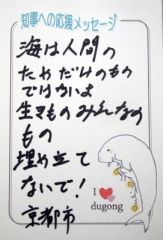 知事への応援メッセージ
海は人間の
ためだけのもの
ではないよ
生きもの みんなの
もの
埋め立て
ないで!
京都市
I ❤
dugong